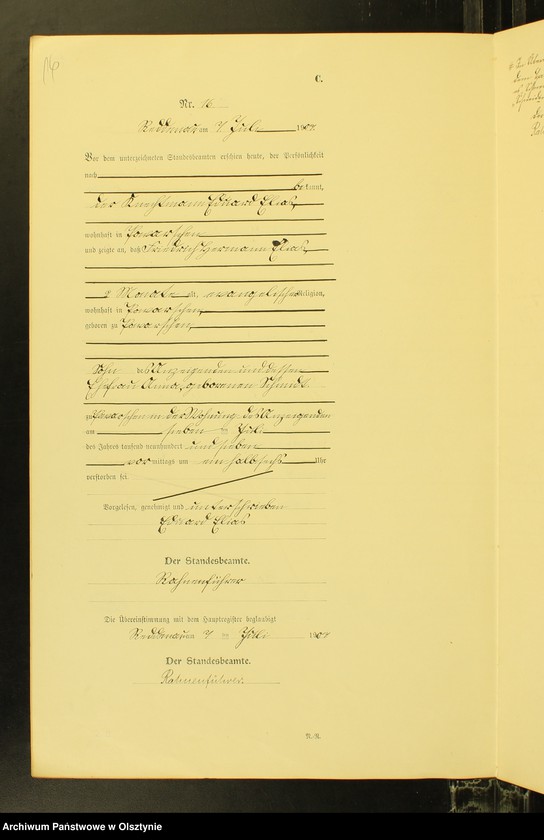 C.
Nr. 16
Reddenau am 7. Juli 1907.
Vor dem unterzeichneten Standesbeamten erschien heute, der Persönlichkeit
nach
bekannt,
der Eduard Elias,
wohnhaft in
und zeigte an, daß Friedrich Hermann Elias,
2 Monate alt, evangelischer Religion,
wohnhaft in
geboren zu
Sohn des Anzeigenden und dessen
Ehefrau Anna, geborenen Schmidt
zu in der Wohnung des Anzeigenden
am sieben ten Juli
des Jahres tausend neunhundert und sieben
vor mittags um ein halb sechs Uhr
verstorben sei.
Vorgelesen, genehmigt und unterschrieben
Eduard Elias
Der Standesbeamte.
Rahnenführer
Die Übereinstimmung mit dem Hauptregister beglaubigt
Reddenau am 7 ten Juli 1907
Der Standesbeamte.
Rahnenführer.
Archiwum Państwowe w Olsztynie